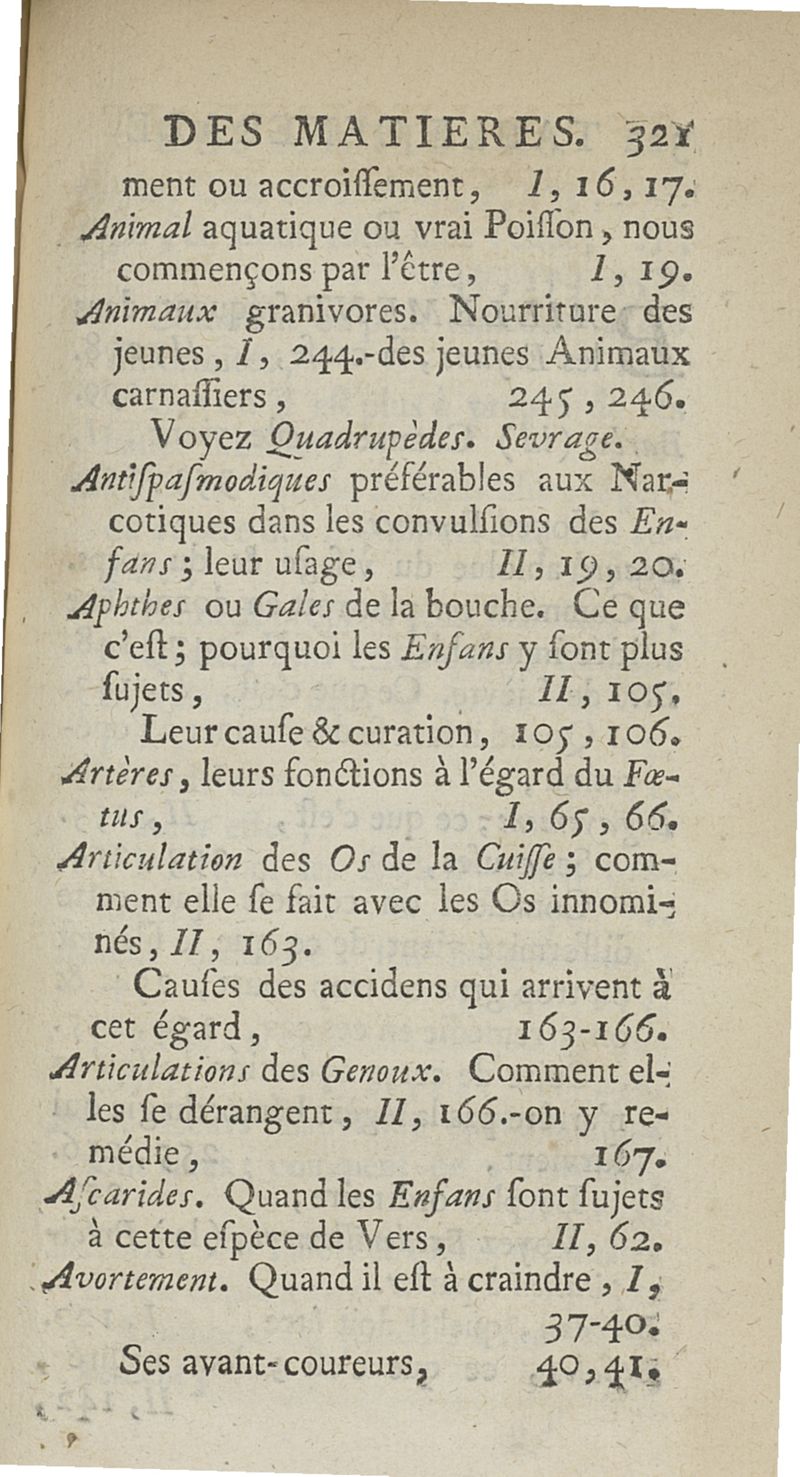 DES MATIERES. 321
ment ou accroiſſement, I, 16, 17.
Animal aquatique ou vrai Poiſſon, nous
commençons par l'être, I, 19.
Animaux granivores. Nourriture des
jeunes, I, 244.-des jeunes Animaux
carnaſſiers, 245, 246.
Voyez Quadrupèdes. Sevrage.
Antiſpaſmodiques préférables aux Nar-
cotiques dans les convulſions des En-
fans; leur uſage, II, 19, 20.
Aphthes ou Gales de la bouche. Ce que
c'eſt; pourquoi les Enfans y ſont plus
ſujets, II, 105.
Leur cauſe & curation, 105, 106.
Artères, leurs fonctions à l'égard du Fœ-
tus, I, 65, 66.
Articulation des Os de la Cuiſſe; com-
ment elle ſe fait avec les Os innomi-
nés, II, 163.
Cauſes des accidens qui arrivent à
cet égard, 163-166.
Articulations des Genoux. Comment el-
les ſe dérangent, II, 166.-on y re-
médie, 167.
Aſcarides. Quand les Enfans ſont ſujets
à cette eſpèce de Vers, II, 62.
Avortement. Quand il eſt à craindre, I,
37-40.
Ses avant-coureurs, 40, 41.